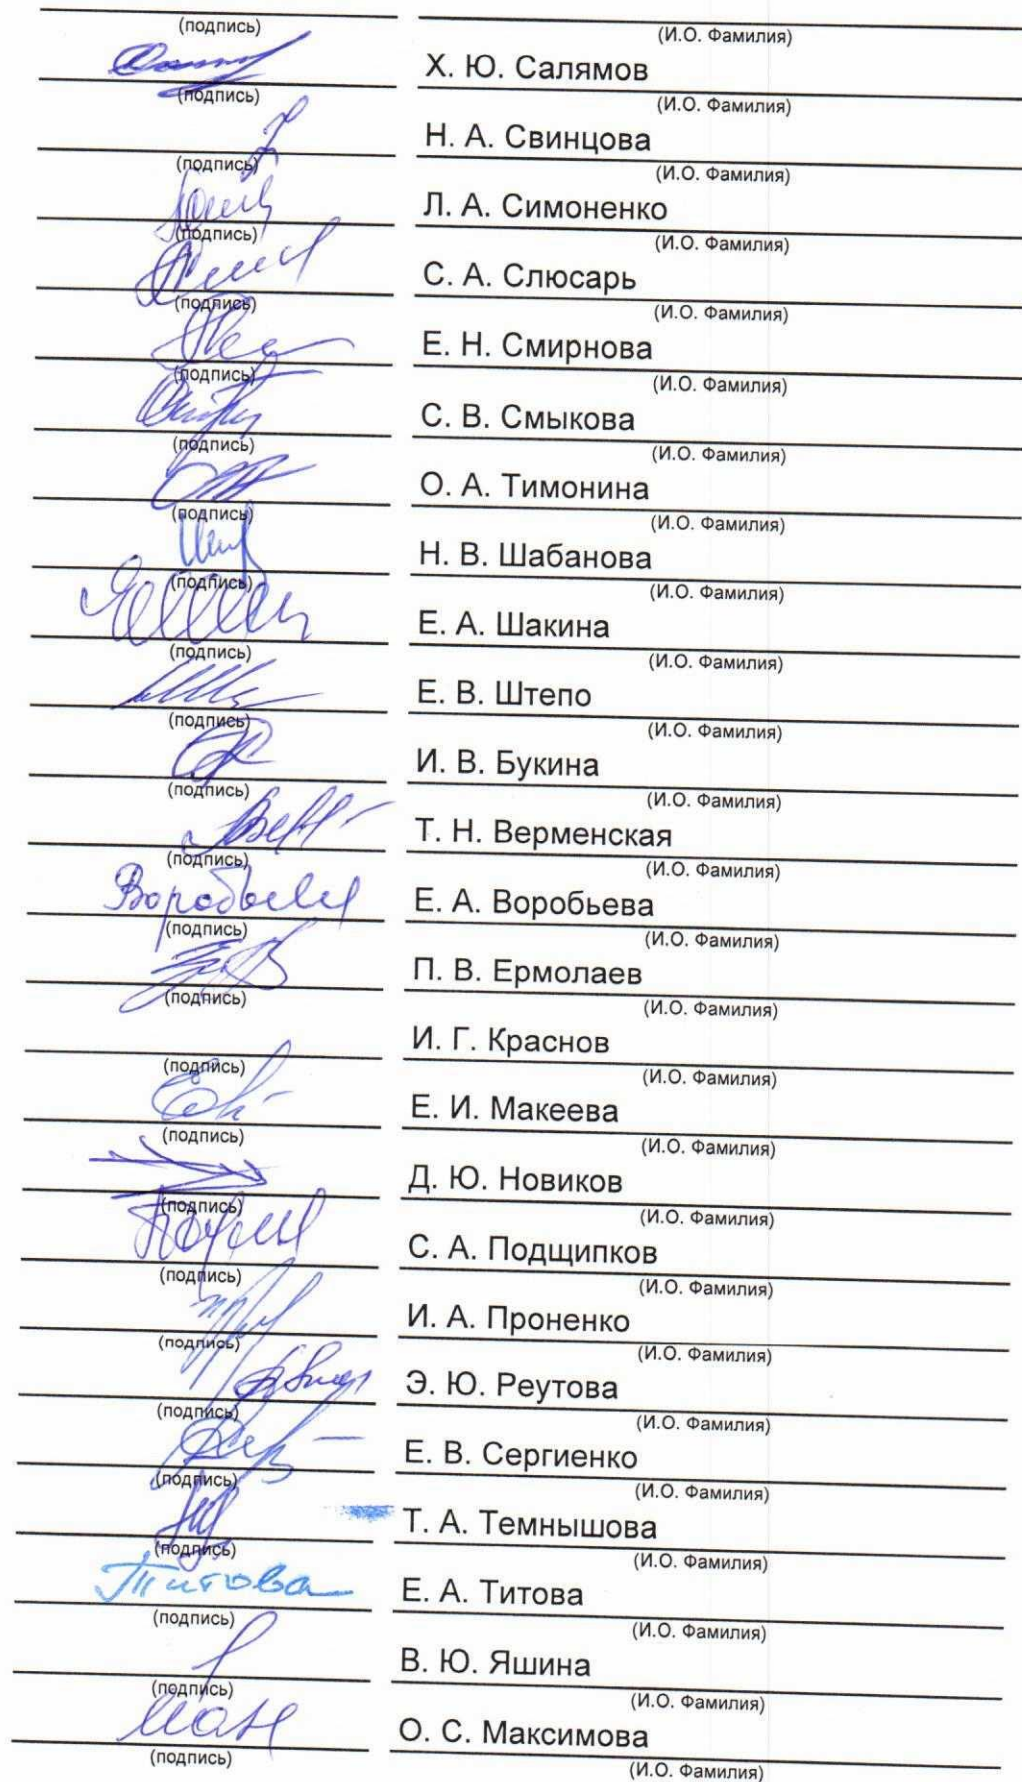 (подпись) (И.О. Фамилия)
Х. Ю. Салямов
(подпись) (И.О. Фамилия)
Н. А. Свинцова
(подпись) (И.О. Фамилия)
Л. А. Симоненко
(подпись) (И.О. Фамилия)
С. А. Слюсарь
(подпись) (И.О. Фамилия)
Е. Н. Смирнова
(подпись) (И.О. Фамилия)
С. В. Смыкова
(подпись) (И.О. Фамилия)
О. А. Тимонина
(подпись) (И.О. Фамилия)
Н. В. Шабанова
(подпись) (И.О. Фамилия)
Е. А. Шакина
(подпись) (И.О. Фамилия)
Е. В. Штепо
(подпись) (И.О. Фамилия)
И. В. Букина
(подпись) (И.О. Фамилия)
Т. Н. Верменская
(подпись) (И.О. Фамилия)
Е. А. Воробьева
(подпись) (И.О. Фамилия)
П. В. Ермолаев
(подпись) (И.О. Фамилия)
И. Г. Краснов
(подпись) (И.О. Фамилия)
Е. И. Макеева
(подпись) (И.О. Фамилия)
Д. Ю. Новиков
(подпись) (И.О. Фамилия)
С. А. Подщипков
(подпись) (И.О. Фамилия)
И. А. Проненко
(подпись) (И.О. Фамилия)
Э. Ю. Реутова
(подпись) (И.О. Фамилия)
Е. В. Сергиенко
(подпись) (И.О. Фамилия)
Т. А. Темнышова
(подпись) (И.О. Фамилия)
Титова Е. А. Титова
(подпись) (И.О. Фамилия)
В. Ю. Яшина
(подпись) (И.О. Фамилия)
О. С. Максимова
(подпись) (И.О. Фамилия)